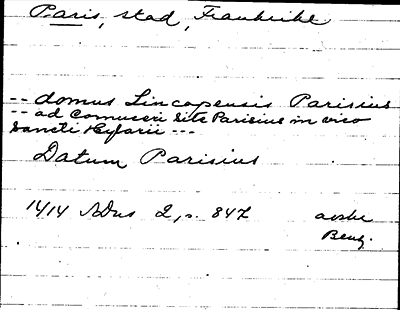 Paris, stad, Frankrike
-- domus Lincopensis Parisius
-- ad Comuceri site Parisius in vico
Sancti Hylarii ---
Datum Parisius
1414 SDns 2, s. 847 avskr
Beng.